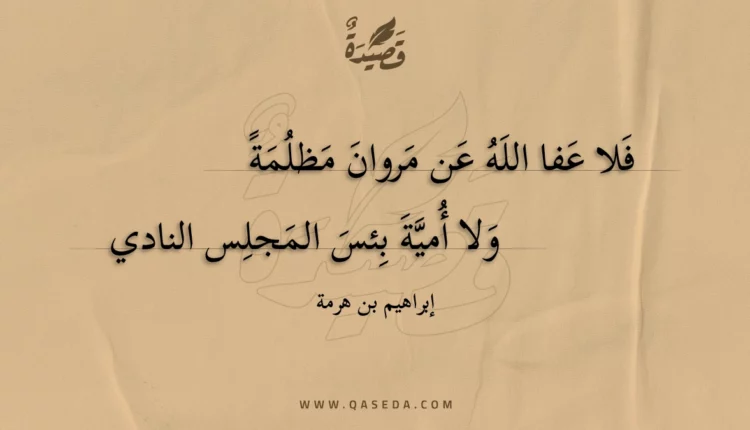 قَصِيْدَةٌ
فَلا عَفا اللَهُ عَن مَروانَ مَظلُمَةً
وَلا أُمَيَّةَ بِئسَ المَجلِس النادي
إبراهيم بن هرمة
WWW.QASEDA.COM